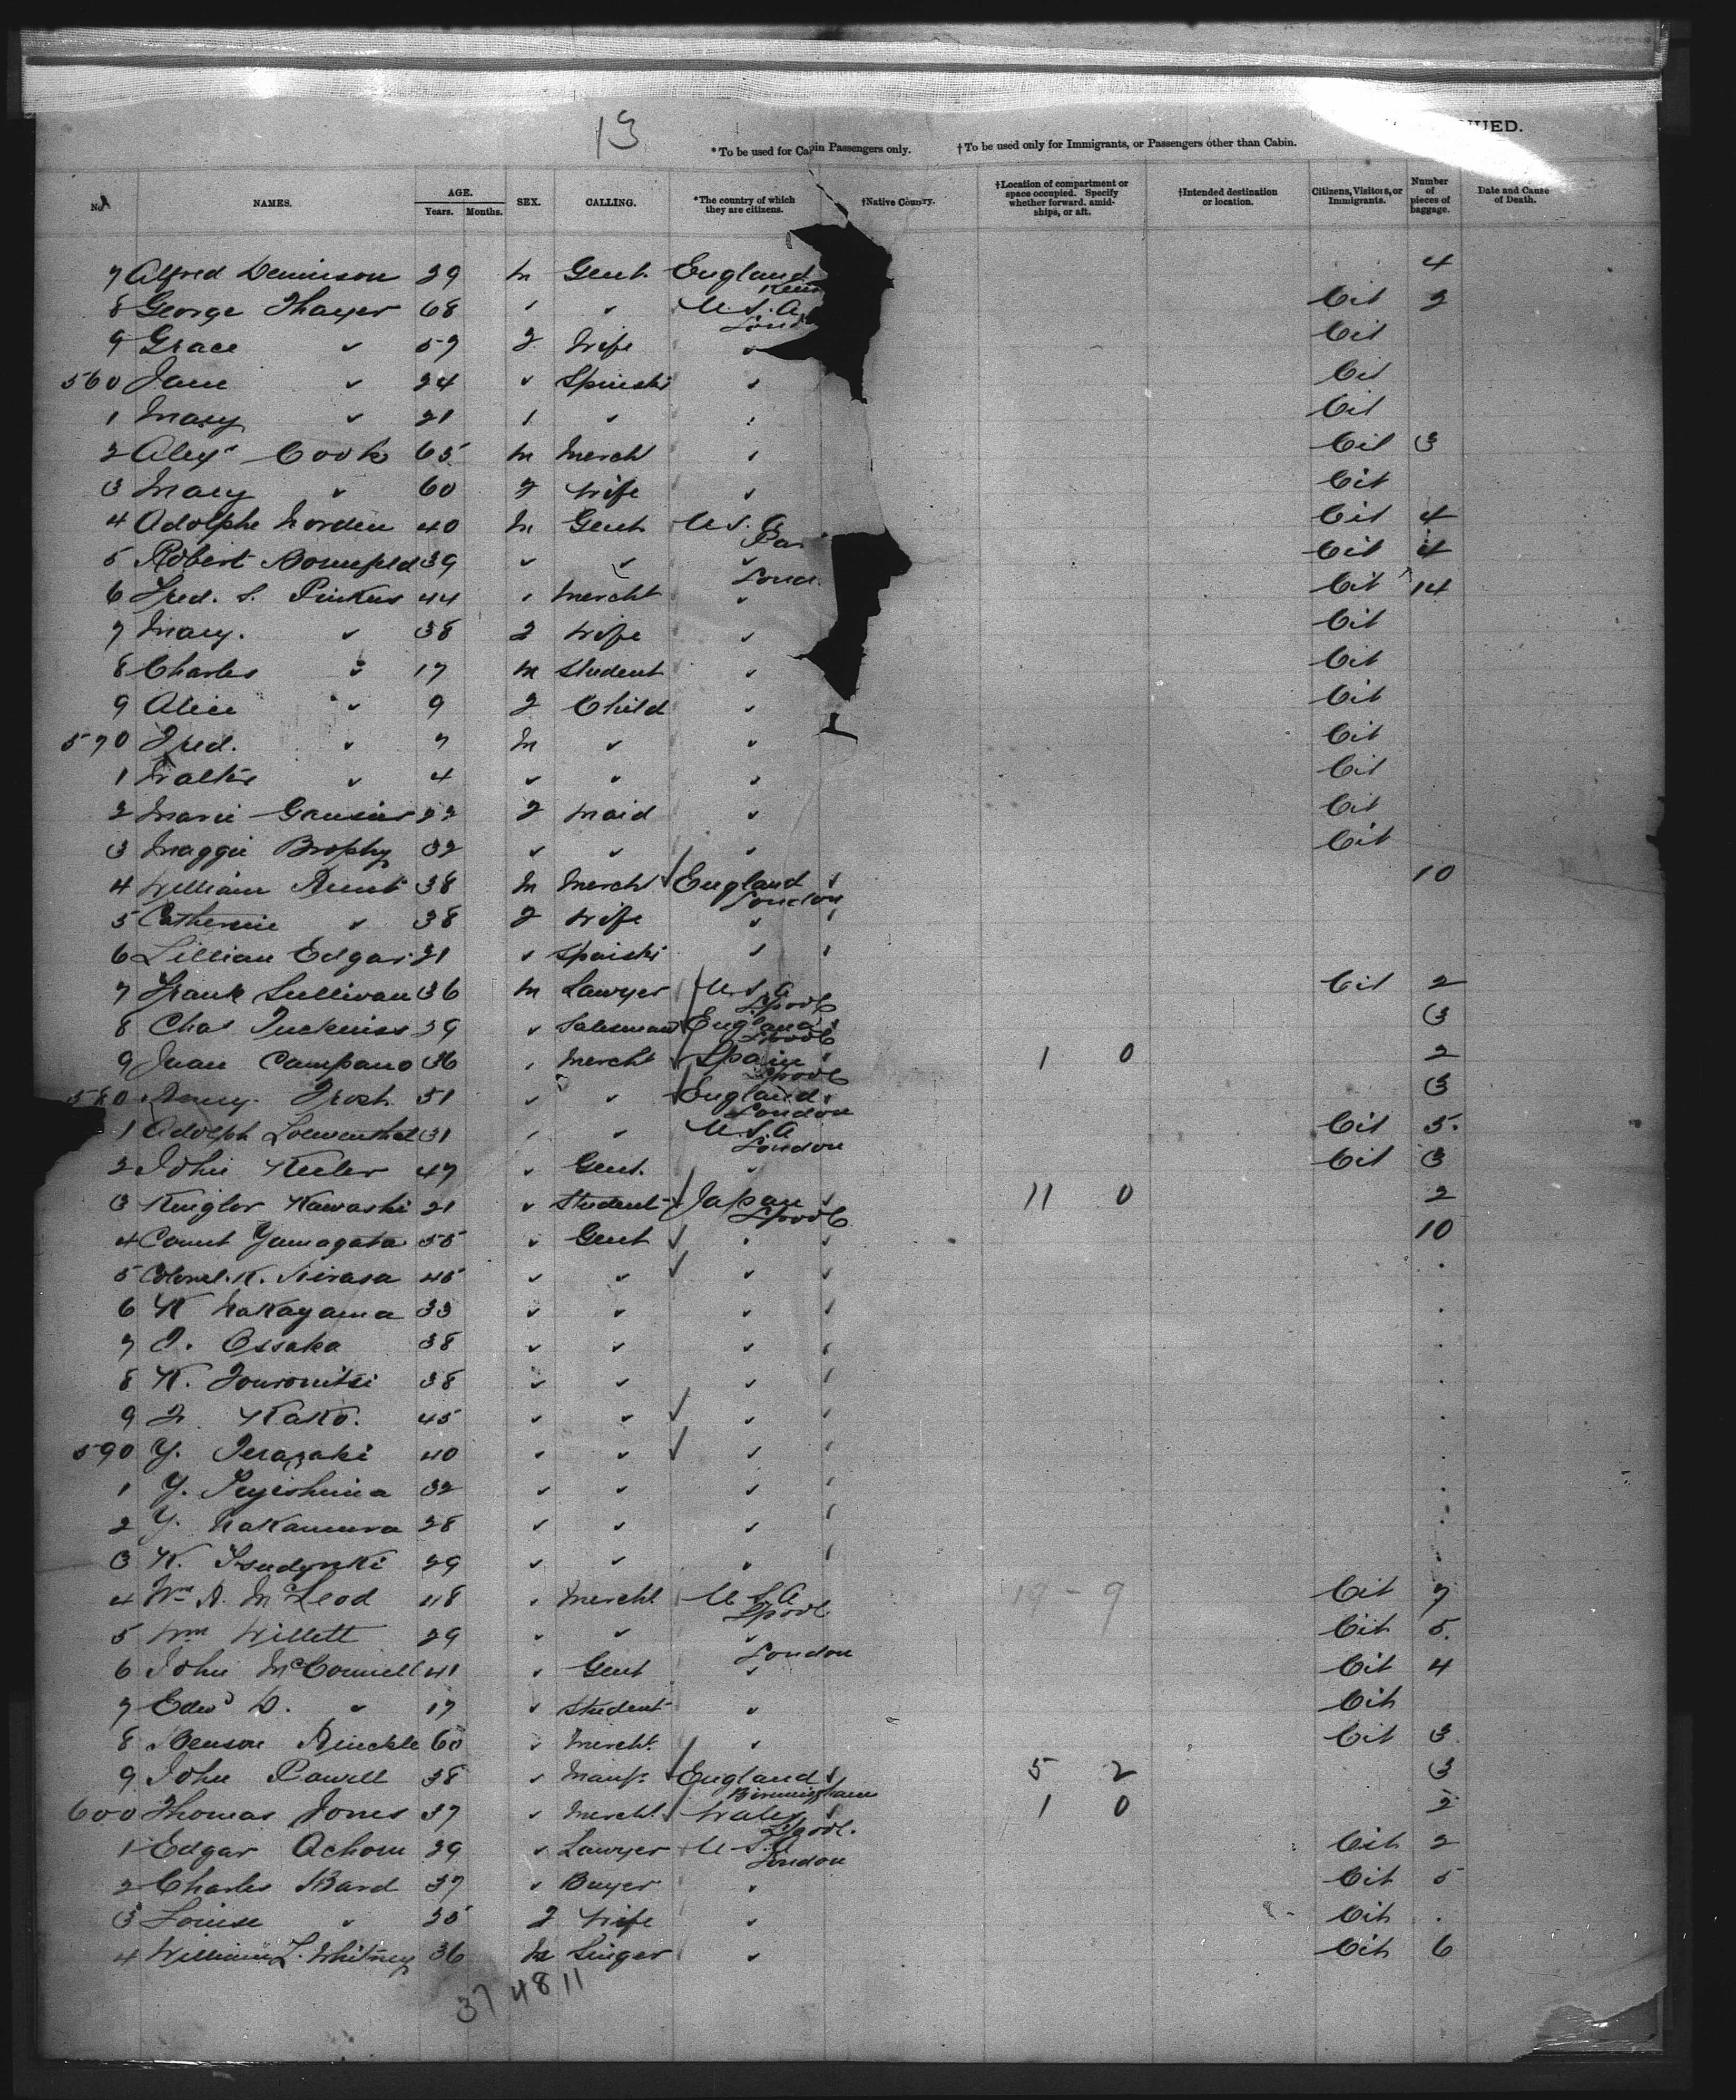 13
NUED.
*To be used for Cabin Passengers only. †To be used only for Immigrants, or Passengers other than Cabin.
No. NAMES. AGE. Years. Months. SEX. CALLING. *The country of which they are citizens. †Native Country. †Location of compartment or space occupied. Specify whether forward, amidships, or aft. †Intended destination or location. Citizens, Visitors, or Immigrants. Number of pieces of baggage. Date and Cause of Death.
7 Alfred Dennison 39 M Gent. England 4
8 George Thayer 68 " " U.S.A. Cit 2
9 Grace " 57 F Wife " Cit
560 Jane " 24 " " Cit
1 Mary " 21 " " " Cit
2 Alexr Cook 65 M Merch " Cit 3
3 Mary " 60 F Wife " Cit
4 Adolphe Norden 40 M Gent U.S.A. Cit 4
5 Robert 39 " " " Cit 4
Lond
6 Fred. S. Pinkus 44 " Mercht " Cit 14
7 Mary. " 38 F Wife " Cit
8 Charles " 17 M Student " Cit
9 Alice " 9 F Child " Cit
570 Fred. " 7 M " " Cit
1 Walter " 4 " " " Cit
2 Marie 22 F Maid " Cit
3 Maggie Brophy 32 " " " Cit
4 William 38 M Mercht England " 10
London
5 Catherine " 38 F Wife " "
6 Lillian Edgar 21 " " "
7 Frank Sullivan 36 M Lawyer U.S.A Cit 2
Lpool
8 Chas 39 " Salesman England " 3
Lpool
9 Juan Campano 36 " Mercht Spain " 1 0 2
Lpool
580 Frost. 51 " " England " 3
London
1 Adolph Loewenthal 31 " " U.S.A Cit 5.
London
2 John Keeler 47 " Gent. " Cit 3
3 Kawashi 21 " Student Japan " 11 0 2
Lpool
4 Count Yamagata 55 " Gent " " 10
5 Colonel. K. Hirasa 45 " " " " .
6 K Nakayama 33 " " " " .
7 Ossaka 38 " " " " .
8 K. 38 " " " " .
9 Kako. 45 " " " " .
590 Y. Terazaki 40 " " " " .
1 Y. 32 " " " " .
2 Y. Nakamura 28 " " " " .
3 K. 29 " " " " .
4 Wm A. McLeod 48 " Mercht U.S.A 19 - 9 Cit 7
Lpool
5 Wm Willett 29 " " " Cit 5.
London
6 John McConnell 41 " Gent " Cit 4
7 Edwd D. " 17 " Student " Cit
8 Benson 60 " Mercht. " Cit 3.
9 John Powell 38 " Manfr England " 5 2 3
Birmingham
600 Thomas Jones 37 " Mercht. Wales " 1 0 2
Lpool.
1 Edgar Achom 39 " Lawyer U.S.A Cit 2
London
2 Charles Bard 37 " Buyer " Cit 5
3 Louise " 35 F Wife " Cit .
4 William L. Whitney 36 M Singer " Cit 6
37 48 11